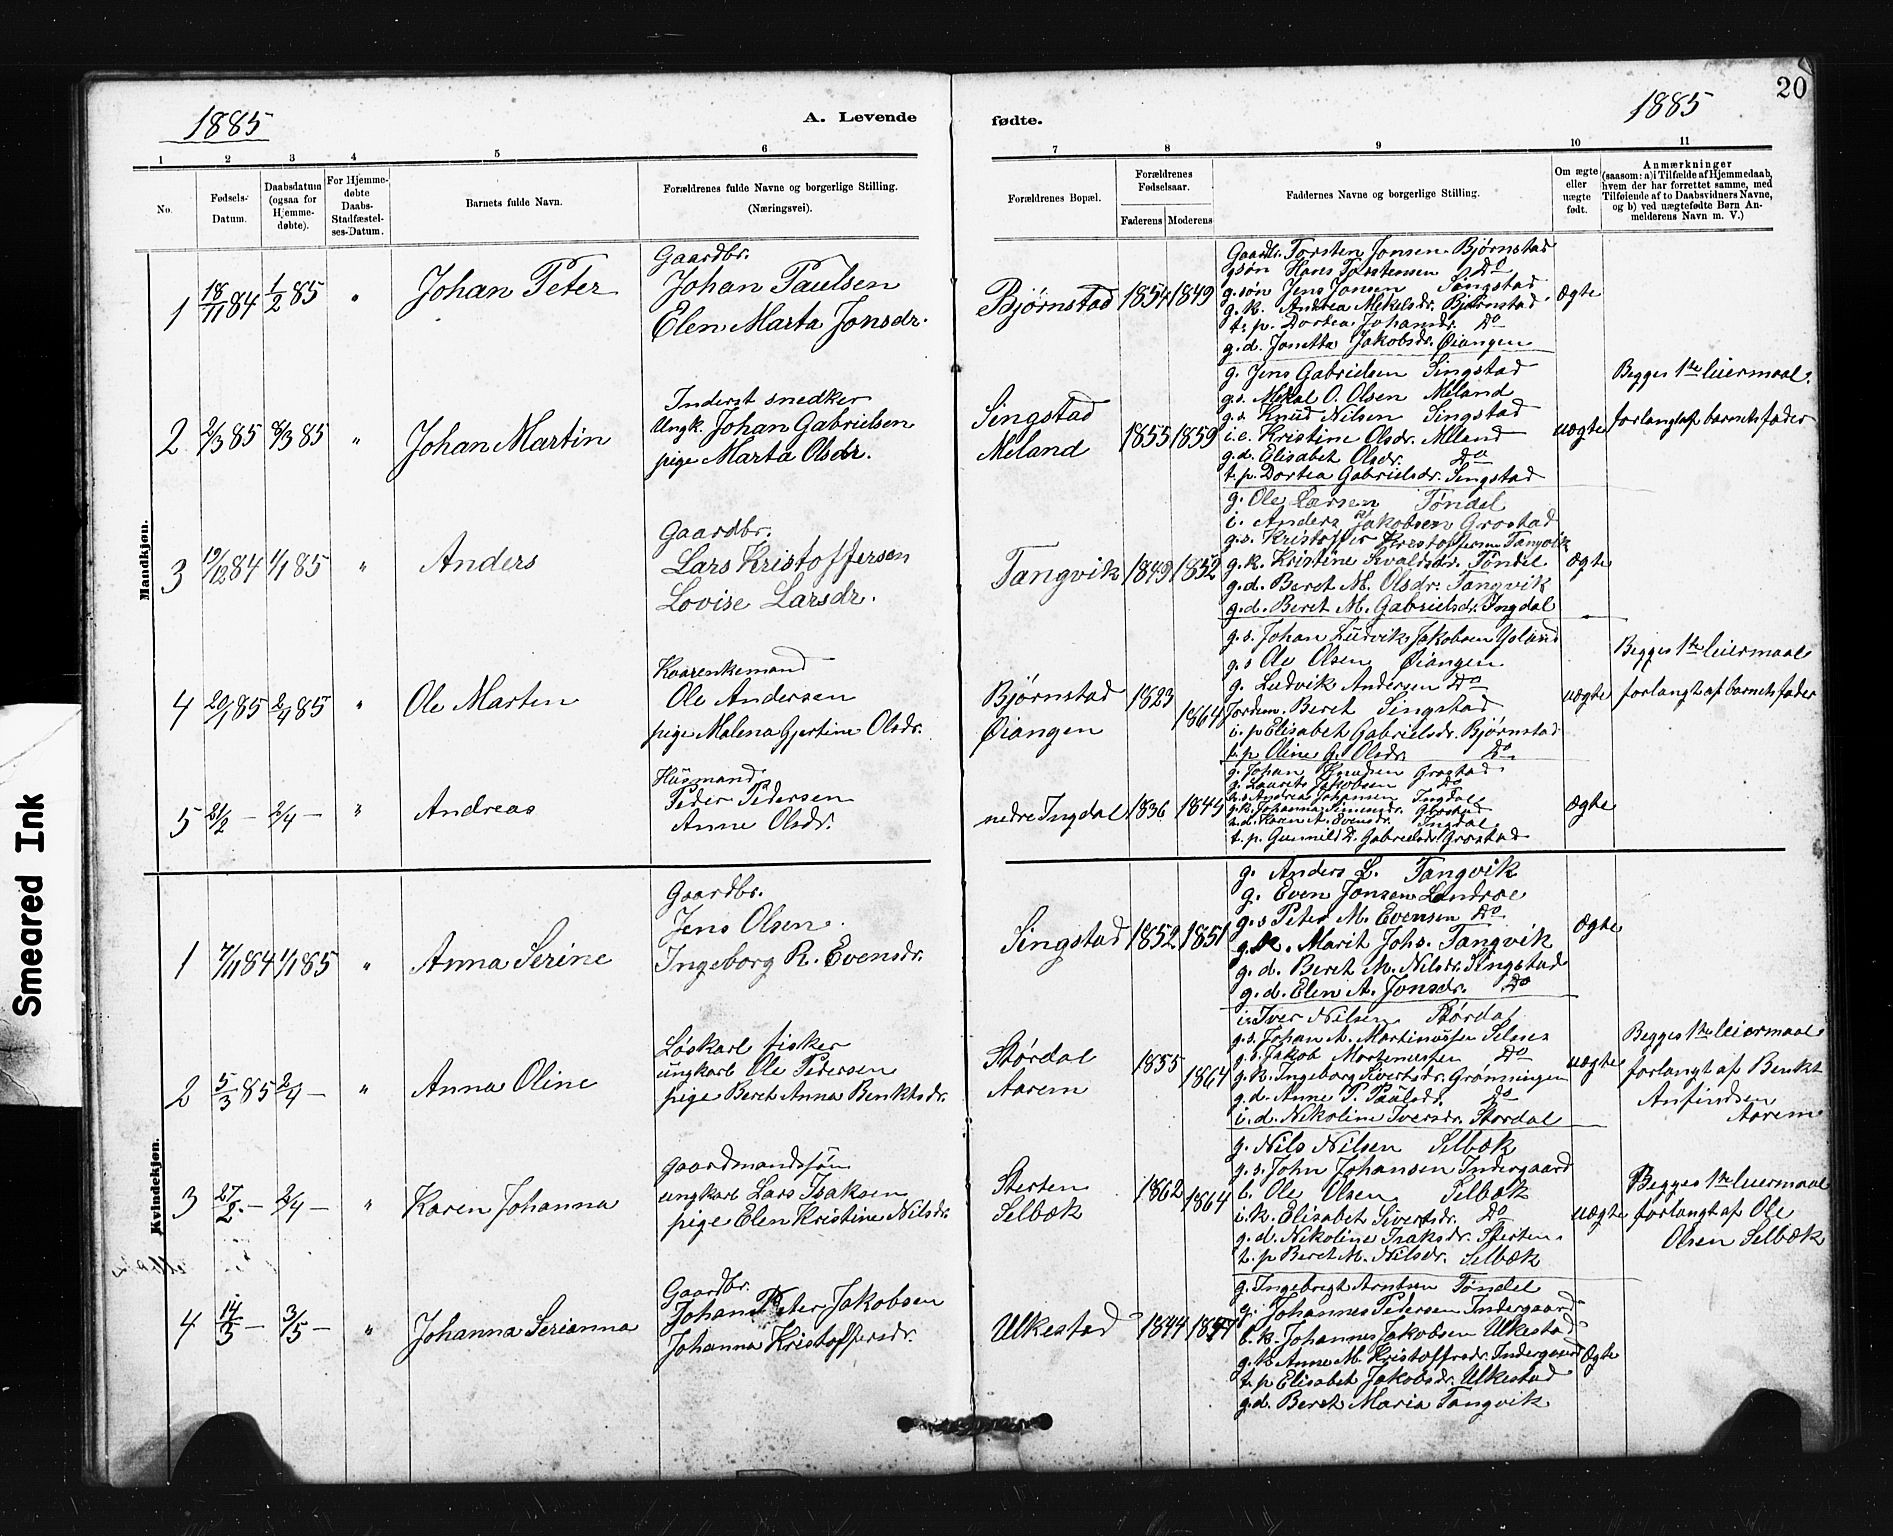 20
1885
A. Levende
fødte.
1885
1
2
3
4
5
6
7
8
9
10
11
No.
Fødsels-
Datum.
Daabsdatum
(ogsaa for
Hjemme-
døbte).
For Hjemme-
døbte
Daabs-
Stadfæstel-
ses-Datum.
Barnets fulde Navn.
Forældrenes fulde Navne og borgerlige Stilling.
(Næringsvei).
Forældrenes Bopæl.
Forældrenes
Fødselsaar.
Faderens
Moderens
Faddernes Navne og borgerlige Stilling.
Om ægte
eller
uægte
født.
Anmærkninger
(saasom: a) i Tilfælde af Hjemmedaab,
hvem der har forrettet samme, med
Tilføiende af to Daabsvidners Navne,
og b) ved uægtefødte Børn An-
melderens Navn m. V.)
Mandkjøn.
1
18/11 84
1/2 85
"
Johan Peter
Gaardbr.
Johan Paulsen
Elen Marta Jonsdr.
Bjørnstad
1854
1849
Gaardbr. Torsten Jonsen Bjørnstad
gsøn Hans Torstensen Do
g.søn Jens Jonsen Singstad
g.k. Andrea Mekelsdr. Bjørnstad
t.p. Dortea Johansdr. Do
g.d. Jonetta Jakobsdr. Øiangen
ægte
2
2/3 85
8/3 85
"
Johan Martin
Inderst snedker
Ungk. Johan Gabrielsen
pige Marta Olsdr.
Singstad
Meland
1855
1859
g. Jens Gabrielsen Singstad
g.s. Mekal O. Olsen Meland
g.s. Knud Nilsen Singstad
i.e. Kristine Olsdr. Meland
g.d. Elisabet Olsdr. Do
t.p. Dortea Gabrielsdr. Singstad
uægte
Begges 1ste leiermaal.
forlangt af barnets fader
3
19/12 84
1/1 85
"
Anders
Gaardbr.
Lars Kristoffersen
Lovise Larsdr.
Tangvik
1849
1852
g. Ole Larsen Tøndel
i. Anders Jakobsen Grostad
g.s. Kristoffer Kristoffersen Tangvik
g.k. Kristine Sivaldsdr. Tøndel
g.d. Beret M. Olsdr. Tangvik
g.d. Beret M. Gabrielsdr. Ingdal
ægte
4
20/1 85
2/4 85
"
Ole Marten
Kaarenkemand
Ole Andersen
pige Malena Gjertine Olsdr.
Bjørnstad
Øiangen
1823
1864
g.s. Johan Ludvik Jakobsen Ysland
g.s Ole Olsen Øiangen
g. Ludvik Andersen Do
Jordem. Beret Singstad
i.p Elisabet Gabrielsdr. Bjørnstad
t.p Oline G. Olsdr. Do
uægte
Begges 1ste leiermaal
forlangt af barnets fader
5
21/2 —
2/4 —
"
Andreas
Husmand
Peder Pedersen
Anne Olsdr.
nedre Ingdal
1836
1845
g. Johan Knudsen Grostad
g. Laurits Jakobsen Do
Andreas Johansen Ingdal
g.k. Johanna Simensdr. Grostad
Karen A. Evensdr. Ingdal
t.p. Gunnild D. Gabrielsdr. Grostad
ægte
Kvindekjøn.
1
7/11 84
1/1 85
"
Anna Serine
Gaardbr.
Jens Olsen
Ingeborg R. Evensdr.
Singstad
1852
1851
g. Anders L. Tangvik
g. Even Jonsen Landrøe
g.s Peter M. Evensen Do
g.k. Marit Johs. Tangvik
g.d. Beret M. Nilsdr. Singstad
g.d. Elen A. Jonsdr. Do
ægte
2
5/3 85
2/4 —
"
Anna Oline
Løskarl fisker
ungkarl Ole Pedersen
pige Beret Anna Benktsdr.
Størdal
Aarem
1855
1864
i. Iver Nilsen Størdal
g.s. Johan A. Martinussen Selnes
g.s. Jakob Mortenussen Do
g.k. Ingeborg Sivertsdr. Grønningen
g.d. Anne P. Paulsdr. Do
i.d. Nikoline Iversdr. Størdal
uægte
Begges 1ste leiermaal
forlangt af Benkt
Anfindsen
Aarem
3
27/2 —
2/4 —
"
Karen Johanna
gaardmandssøn
ungkarl Lars Isaksen
pige Elen Kristine Nilsdr.
Sterten
Selbæk
1862
1864
g. Nils Nilsen Selbæk
g.s. John Johansen Indergaard
b. Ole Olsen Selbæk
i.k. Elisabet Sivertsdr. Do
g.d. Nikoline Isaksdr. Sterten
t.p Beret M. Nilsdr. Selbæk
uægte
Begges 1ste leiermaal
forlangt af Ole
Olsen Selbæk
4
14/3 —
3/5 —
"
Johanna Serianna
Gaardbr.
Johan Peter Jakobsen
Johanna Kristoffersdr.
Ulkestad
1844
g. Ingebrigt Arntsen Tøndel
g. Johannes Pedersen Indergaard
b.k. Johannes Jakobsen Ulkestad
g.k. Anne M. Kristoffersdr. Indergaard
t.p Elisabet Jakobsdr. Ulkestad
g.d. Beret Maria Tangvik
Ægte
Smeared Ink